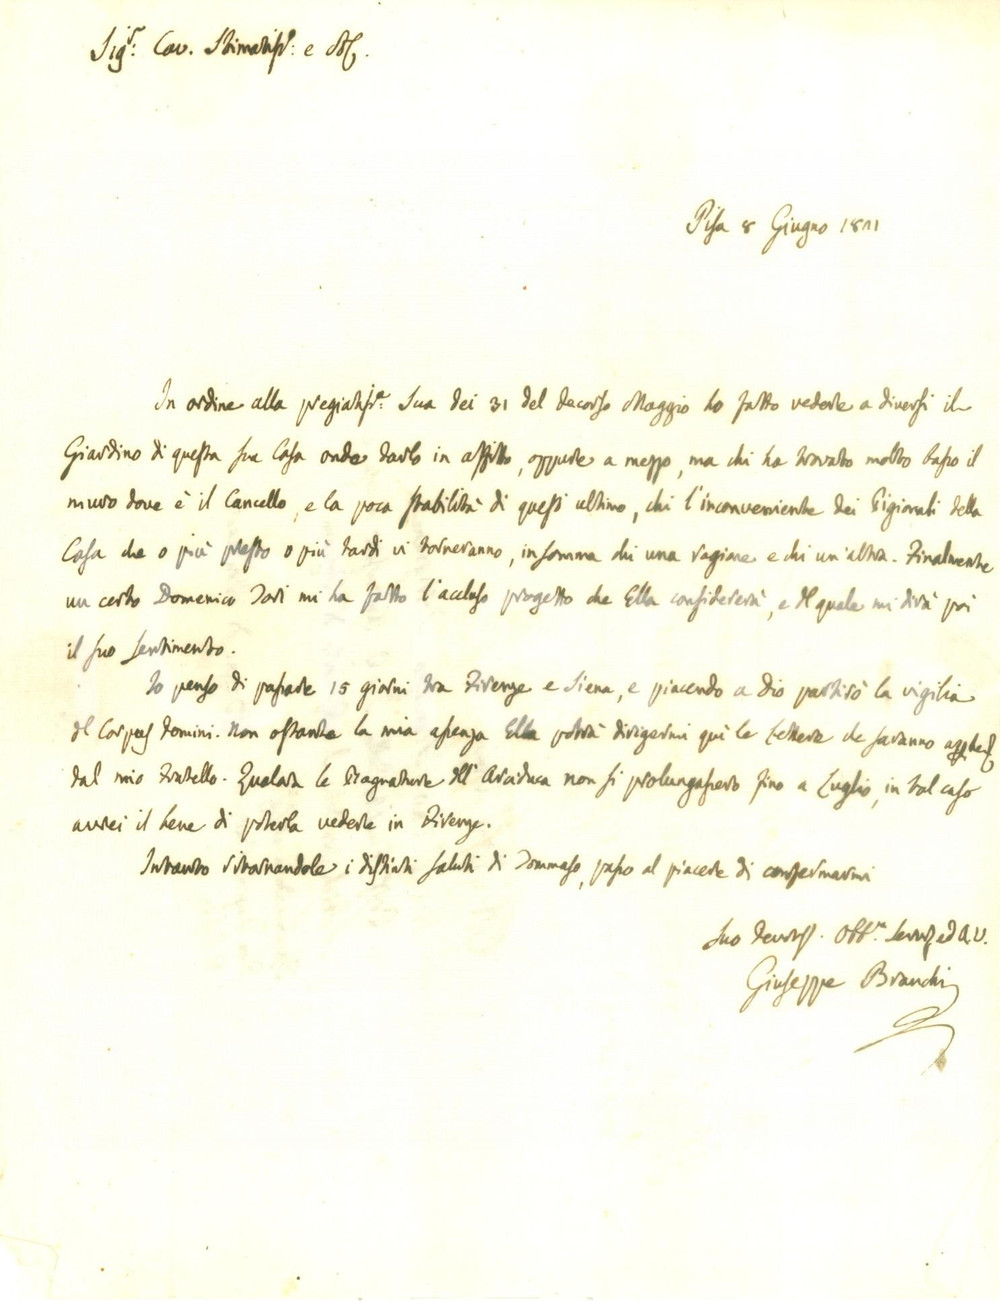 Sig.r Cav. Stimatiss.o e
Pisa 8 Giugno 1811
In ordine alla pregiatiss.a Sua dei 31 del decorso Maggio ho fatto vedere a diversi il
Giardino di questa sua Casa onde darlo in affitto, oppure a mezzo, ma chi ha trovato molto basso il
muro dove è il Cancello, e la poca stabilità di quest ultimo, chi l'inconveniente dei Pigionali della
Casa che o più presto o più tardi vi torneranno, insomma chi una ragione e chi un'altra. Finalmente
un certo Domenico mi ha fatto l'accluso progetto che Ella considererà, e del quale mi dirà poi
il suo sentimento.
Io penso di passare 15 giorni tra Firenze e Siena, e piacendo a Dio partirò la vigilia
del Corpus Domini. Non ostante la mia assenza Ella potrà dirigermi quì le Lettere che saranno
dal mio Fratello. Qualora le Bagnature dell'Arciduca non si prolungassero fino a Luglio, in tal caso
avrei il bene di poterla vedere in Firenze.
Intanto ritornandole i distinti saluti di Tommaso, passo al piacere di confermarmi
Suo devotiss. Obb.mo Serv. ed A. V.
Giuseppe Branchi